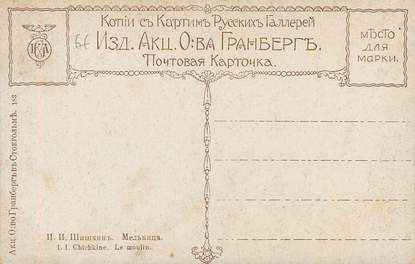 Копіи съ Картинъ Русскихъ Галлерей
Изд. Акц. О:ва Гранбергъ.
Почтовая Карточка.
мѣсто
для
марки.
Акц. О:во Гранбергъ въ Стокгольмѣ. 183
И. И. Шишкинъ. Мельница.
I. I. Chichkine. Le moulin.